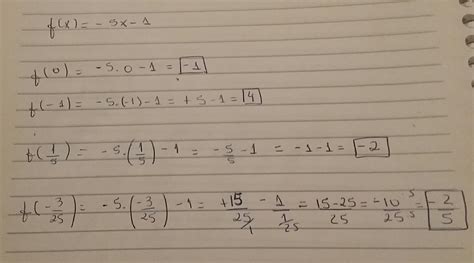 f(x) = - 5x - 1
f(0) = -5.0 - 1 = -1
f(-1) = -5.(-1) - 1 = +5 - 1 = 4
f(1/5) = -5.(1/5) - 1 = -5/5 - 1 = -1 - 1 = -2
f(-3/25) = -5.(-3/25) - 1 = +15/25/1 - 1/1/25 = 15-25/25 = -10/25 5 5 = -2/5